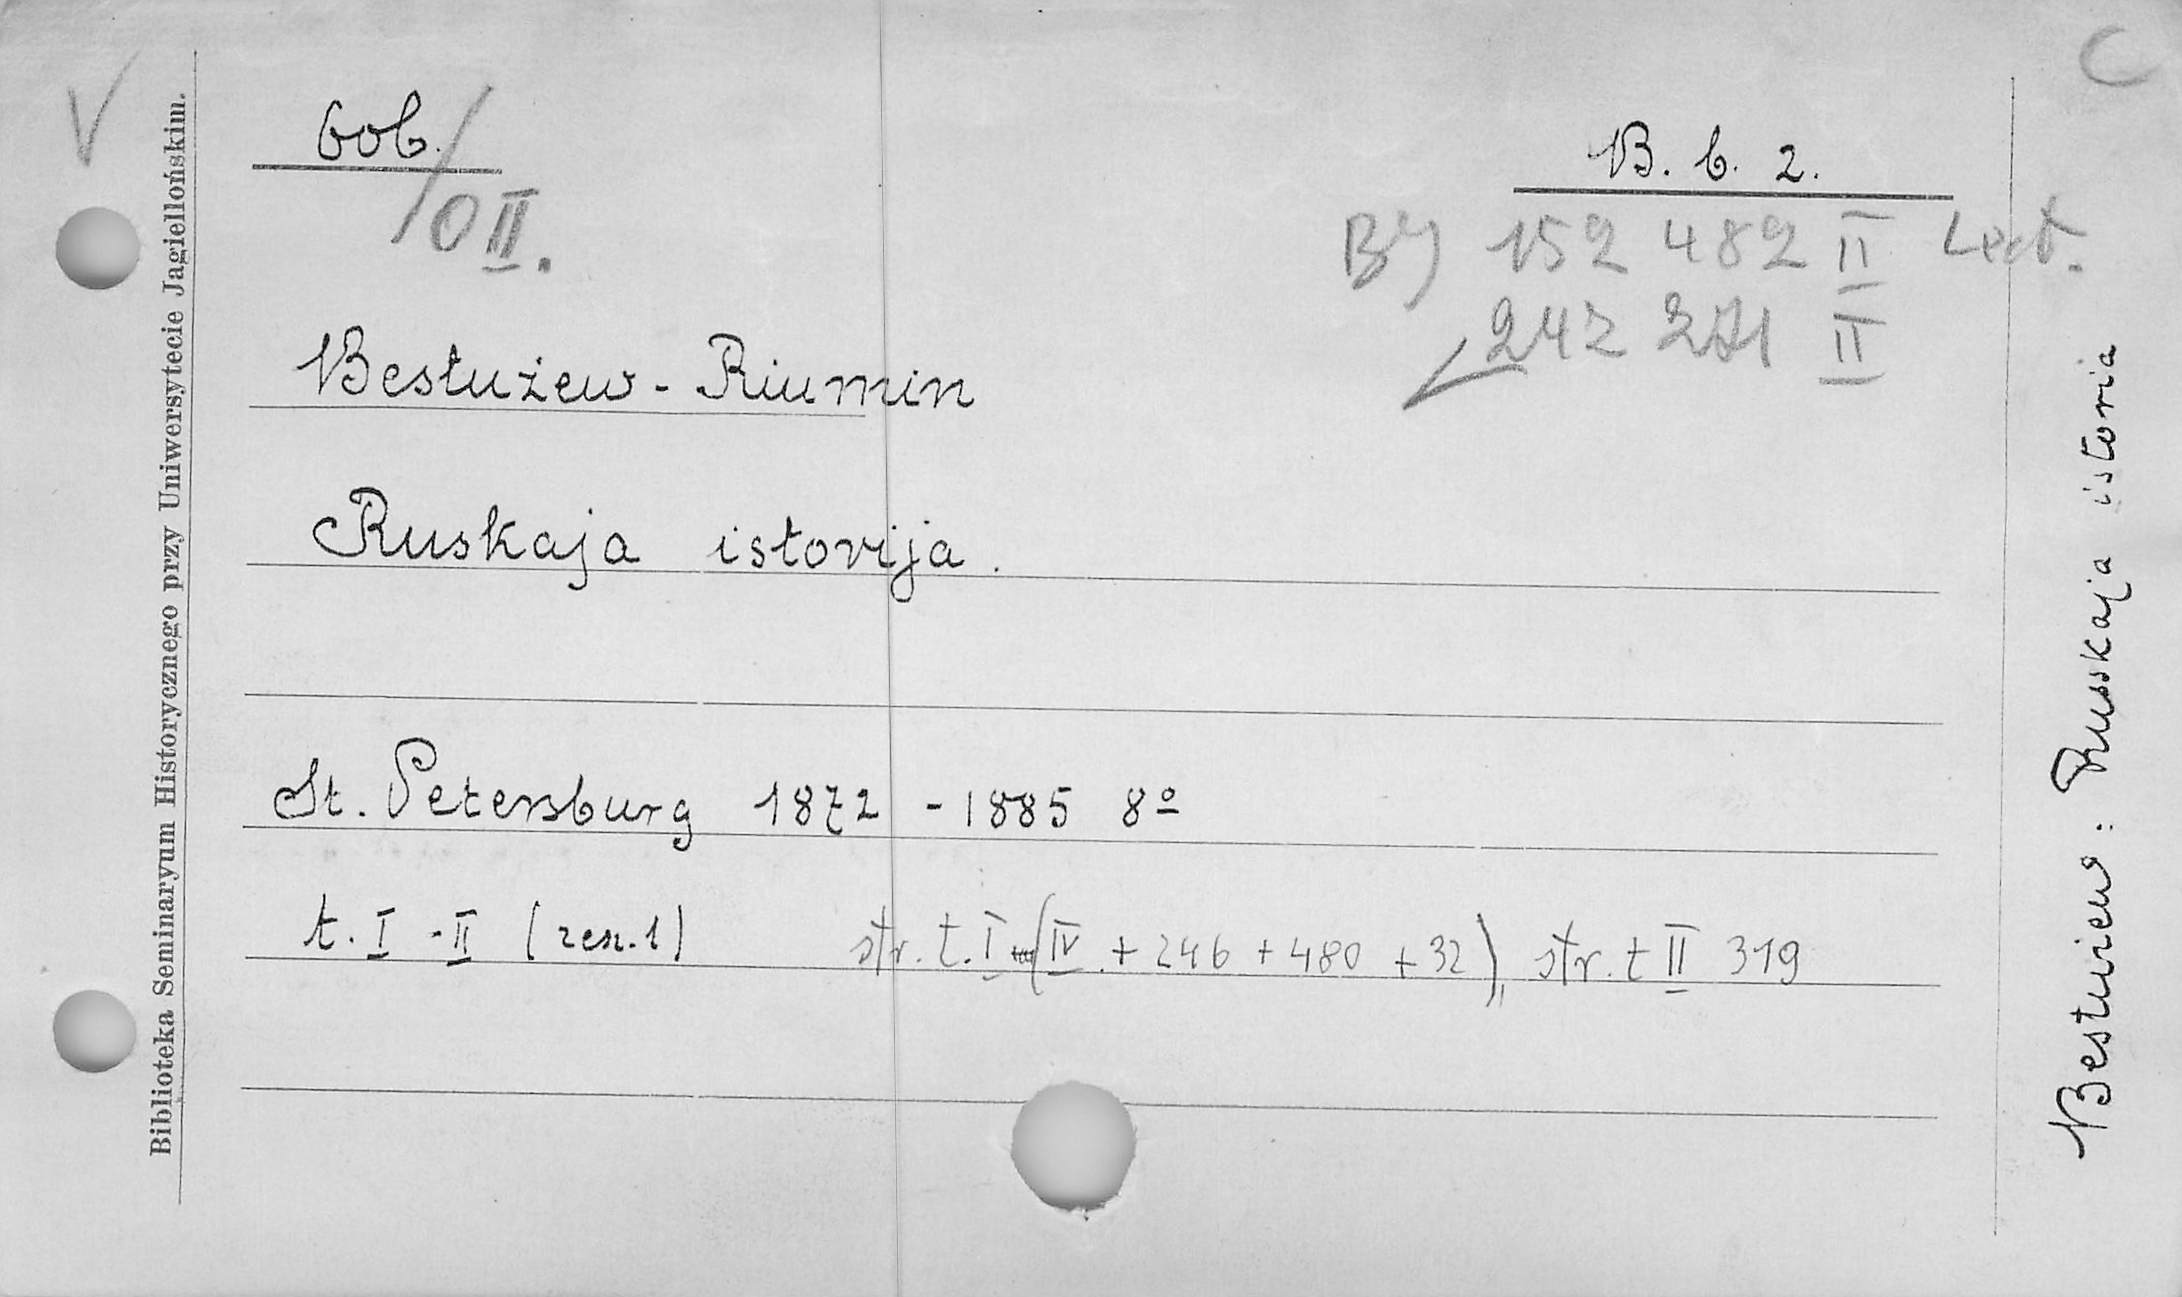 V
C
606.
/OII.
B. b. 2.
BJ 152 482 II Lect.
247 271 II
Bestużew - Riumin
Ruskaja istorija.
St. Petersburg 1872 - 1885 8º
t. I - II (zesz. 1)
str. t. I (IV + 246 + 480 + 32), str. t II 319
Biblioteka Seminaryum Historycznego przy Uniwersytecie Jagiellońskim.
Bestużew: Russkaja istoria